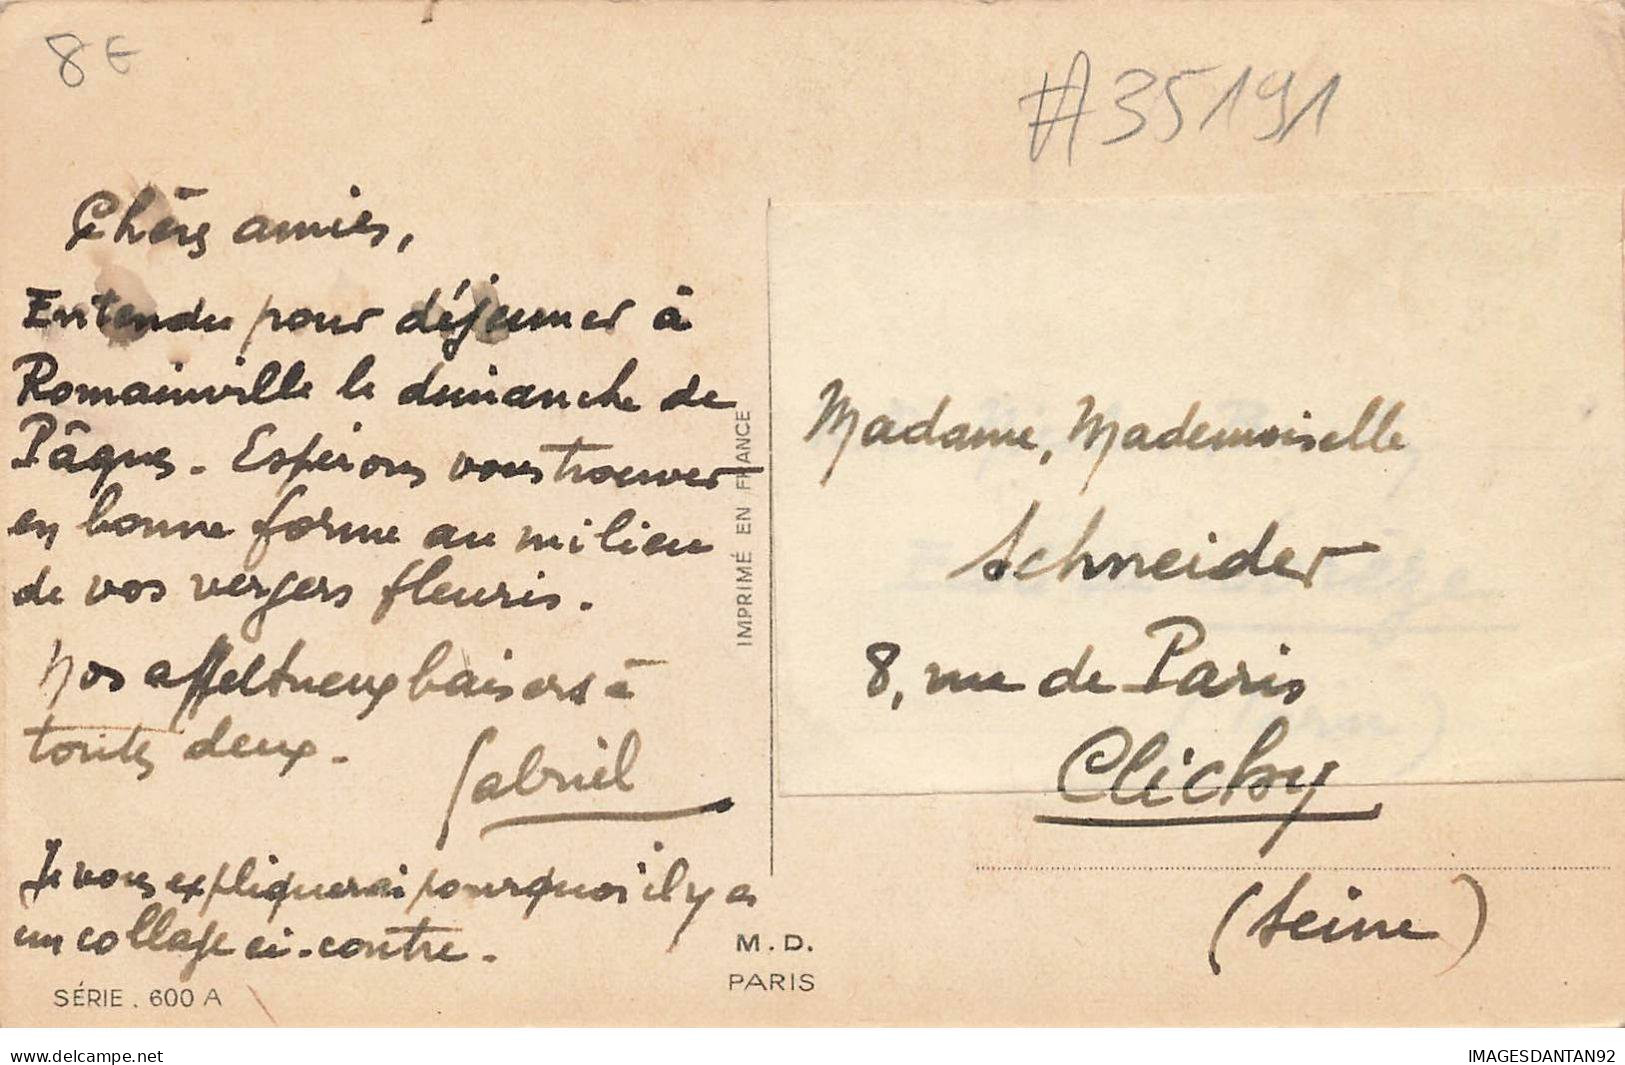 8 €
#35191
Chères amies,
Entendu pour déjeuner à
Romainville le dimanche de
Pâques. Espérons vous trouver
en bonne forme au milieu
de vos vergers fleuris.
Nos affectueux baisers à
toutes deux.
Gabriel
Je vous expliquerai pourquoi il y a
un collage ci-contre.
SÉRIE. 600 A
IMPRIMÉ EN FRANCE
M. D.
PARIS
Madame, Mademoiselle
Schneider
8, rue de Paris
Clichy
(Seine)
www.delcampe.net
IMAGESDANTAN92